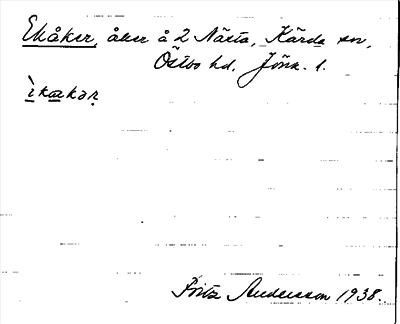 Ekåker, åker å 2 Nästa, Kärda sn,
Östbo hd, Jönk. l.
ìkakər
Fritz Andersson 1938.